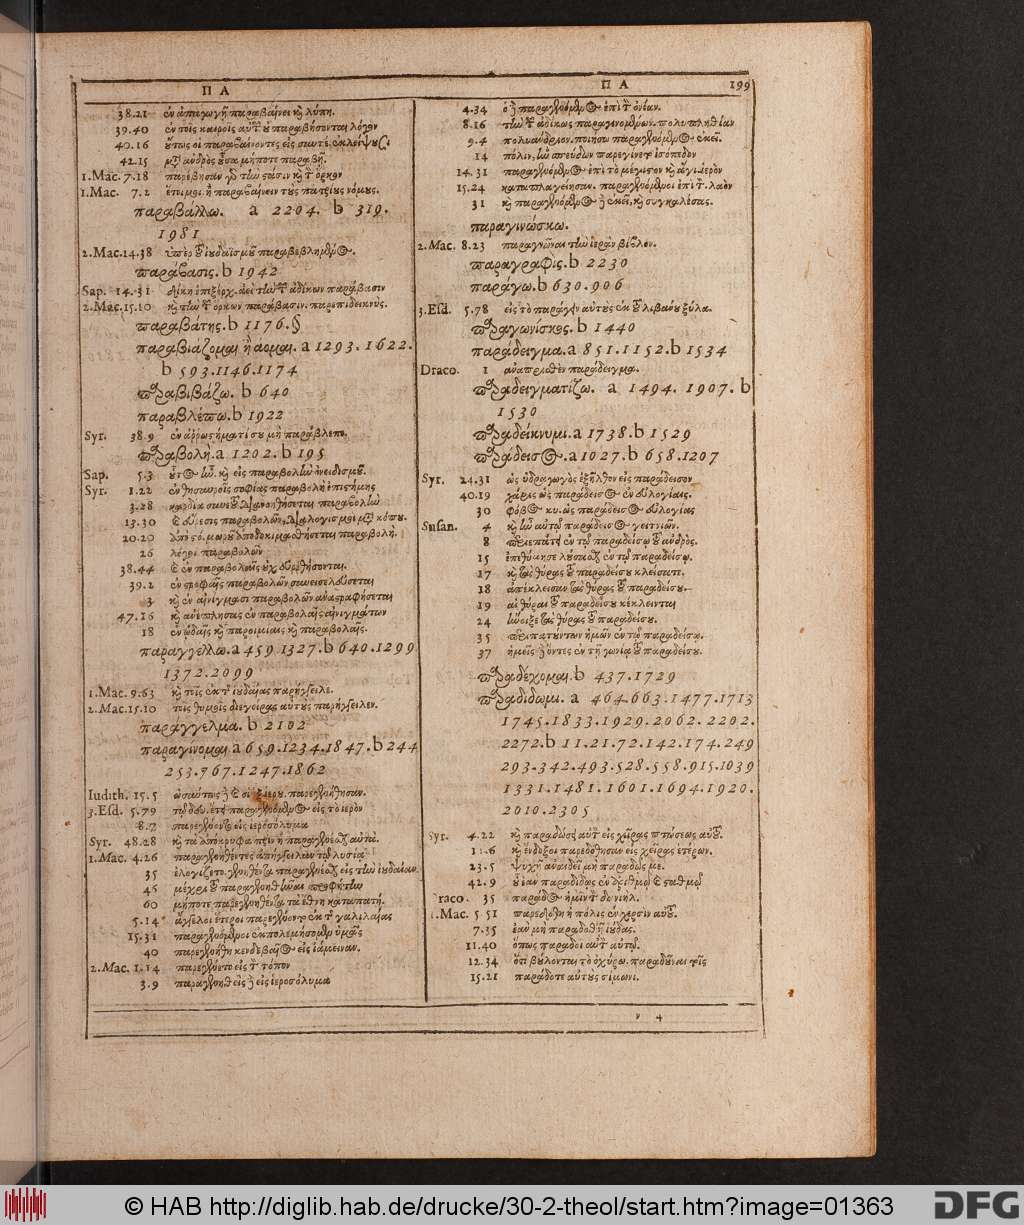 Π Α
38.21 ἐν ἀπαγωγῇ παραβαίνει καὶ λύπη.
39.40 ἐν τοῖς καιροῖς παραβήσονται λόγον
40.16
42.15 ἀνδρὸς μήποτε παραβῇ.
1.Mac. 7.18 παρέβησαν τὴν στάσιν καὶ τὸν ὅρκον
1.Mac. 7.2 ἕτοιμοι ἢ παραβαίνειν τοὺς πατρίους νόμους.
παραβάλλω. a 2204. b 319.
1981
2.Mac.14.38 ὑπὲρ τοῦ ἰουδαϊσμοῦ παραβεβλημένος.
παράβασις. b 1942
Sap. 14.31 δίκη ἐπεξέρχ. ἀεὶ τὴν τῶν ἀδίκων παράβασιν
2.Mac.15.10 καὶ τὴν τῶν ὅρκων παράβασιν. παρεπιδεικνύς.
παραβάτης. b 1176.§
παραβιάζομαι ἢ άομαι. a 1293.1622.
b 593.1146.1174
παραβιβάζω. b 640
παραβλέπω. b 1922
Syr. 38.9 ἐν ἀρρωστήματί σου μὴ παράβλεπε.
παραβολή. a 1202. b 195
Sap. 5.3 καὶ εἰς παραβολὴν ὀνειδισμοῦ.
Syr. 1.22 ἐν θησαυροῖς σοφίας παραβολὴ ἐπιστήμης
3.28 καρδία συνετοῦ διανοηθήσεται παραβολὴν
13.30 εὕρεσις παραβολῶν, διαλογισμοὶ μετὰ κόπου.
20.20 ἀπὸ στό. μωροῦ ἀποδοκιμασθήσεται παραβολή.
26 λόγοι παραβολῶν
38.44 ἐν παραβολαῖς οὐχ εὑρεθήσονται.
39.2 ἐν στροφαῖς παραβολῶν συνεισελεύσεται
3 καὶ ἐν αἰνίγμασι παραβολῶν ἀναστραφήσεται
47.16 καὶ ἀνέπλησας ἐν παραβολαῖς αἰνιγμάτων
18 ἐν ᾠδαῖς καὶ παροιμίαις καὶ παραβολαῖς.
παραγγέλλω. a 459.1327. b 640.1299
1372.2099
1.Mac. 9.63 καὶ τοῖς ἐκ τῆς ἰουδαίας παρήγγειλε.
2.Mac.15.10 τοῖς θυμοῖς διεγείρας αὐτοὺς παρήγγειλεν.
παράγγελμα. b 2102
παραγίνομαι. a 659.1234.1847. b 244
253.767.1247.1862
Iudith. 15.5 ὡσαύτως παρεγενήθησαν.
3.Esd. 5.79 παραγενόμενος εἰς τὸ ἱερὸν
8.7 παρεγένοντο εἰς ἱερόσολυμα
Syr. 48.28 καὶ τὰ ἀπόκρυφα πρὶν ἢ παραγενέσθαι αὐτά.
1.Mac. 4.26 παραγενηθέντες ἀπήγγειλαν τῷ λυσίᾳ
35 ἐλογίζετο παραγενέσθαι εἰς τὴν ἰουδαίαν
46 μέχρι τοῦ παραγενηθῆναι προφήτην
60 μήποτε παραγενηθέντα τὰ ἔθνη καταπατῇ.
5.14 ἄγγελοι ἕτεροι παρεγένοντο ἐκ τῆς γαλιλαίας
15.31 παραγενόμενοι ἐκπολεμήσομεν ὑμᾶς
40 παρεγενήθη κενδεβαῖος εἰς ἰάμνειαν.
2.Mac. 1.14 παρεγένετο εἰς τὸν τόπον
3.9 παραγενηθεὶς δὲ εἰς ἱεροσόλυμα
Π Α 199
4.34 ὁ δὲ παραγενόμενος ἐπὶ τὸν ὀνίαν.
8.16 τῶν ἀδίκως παραγινομένων. πολυπληθίαν
9.4 πολυάνδριον. ποιήσω παραγενόμενος ἐκεῖ.
14 πόλιν, ἣν σπεύδων παρεγίνετο ἰσόπεδον
14.31 παραγενόμενος ἐπὶ τὸ μέγιστον καὶ ἅγι.ἱερὸν
15.24 καταπλαγείησαν. παραγενόμενοι ἐπὶ τὸν λαὸν
31 καὶ παραγενόμενος δὲ ἐκεῖ, καὶ συγκαλέσας.
παραγινώσκω.
2.Mac. 8.23 παραγνῶναι τὴν ἱερὰν βίβλον.
παραγραφίς. b 2230
παράγω. b 630.906
3.Esd. 5.78 εἰς τὸ παράγειν αὐτοὺς ἐκ τοῦ λιβάνου ξύλα.
παραγωνίσκος. b 1440
παράδειγμα. a 851.1152. b 1534
Draco. 1 παράδειγμα.
παραδειγματίζω. a 1494. 1907. b
1530
παραδείκνυμι. a 1738. b 1529
παράδεισος. a 1027. b 658.1207
Syr. 24.31 ὡς ὑδραγωγὸς ἐξῆλθον εἰς παράδεισον
40.19 χάρις ὡς παράδεισος ἐν εὐλογίαις.
30 φόβος κυ. ὡς παράδεισος εὐλογίας
Susan. 4 καὶ ἦν αὐτῷ παράδεισος γειτνιῶν.
8 περιεπάτει ἐν τῷ παραδείσῳ τοῦ ἀνδρός.
15 ἐπεθύμησε λούσασθαι ἐν τῷ παραδείσῳ.
17 καὶ τὰς θύρας τοῦ παραδείσου κλείσατε.
18 ἀπέκλεισαν τὰς θύρας τοῦ παραδείσου.
19 αἱ θύραι τοῦ παραδείσου κέκλεινται
24 ἤνοιξε τὰς θύρας τοῦ παραδείσου.
35 περιπατούντων ἡμῶν ἐν τῷ παραδείσῳ.
37 ἡμεῖς δὲ ὄντες ἐν τῇ γωνίᾳ τοῦ παραδείσου.
παραδέχομαι. b 437.1729
παραδίδωμι. a 464.663.1477.1713
1745.1833.1929.2062.2202.
2272. b 11.21.72.142.174.249
293.342.493.528.558.915.1039
1331.1481.1601.1694.1920.
2010.2305
Syr. 4.22 καὶ παραδώσει αὐτὸν εἰς χεῖρας πτώσεως αὐτοῦ.
11.6 καὶ ἔνδοξοι παρεδόθησαν εἰς χεῖρας ἑτέρων.
23.5 ψυχῇ ἀναιδεῖ μὴ παραδῷς με.
42.9 ὃ ἐὰν παραδίδως ἐν ἀριθμῷ σταθμῷ
Draco. 35 παράδος ἡμῖν τὸν δανιήλ.
1.Mac. 5.51 παρεδόθη ἡ πόλις ἐν χερσὶν αὐτοῦ.
7.35 ἐὰν μὴ παραδοθῇ ἰούδας.
11.40 ὅπως παραδοῖ αὐτὸν αὐτῷ.
12.34 ὅτι βούλονται τὸ ὀχύρω. παραδοῦναι τοῖς
15.21 παράδοτε αὐτοὺς σίμωνι.
v 4
© HAB http://diglib.hab.de/drucke/30-2-theol/start.htm?image=01363
DFG